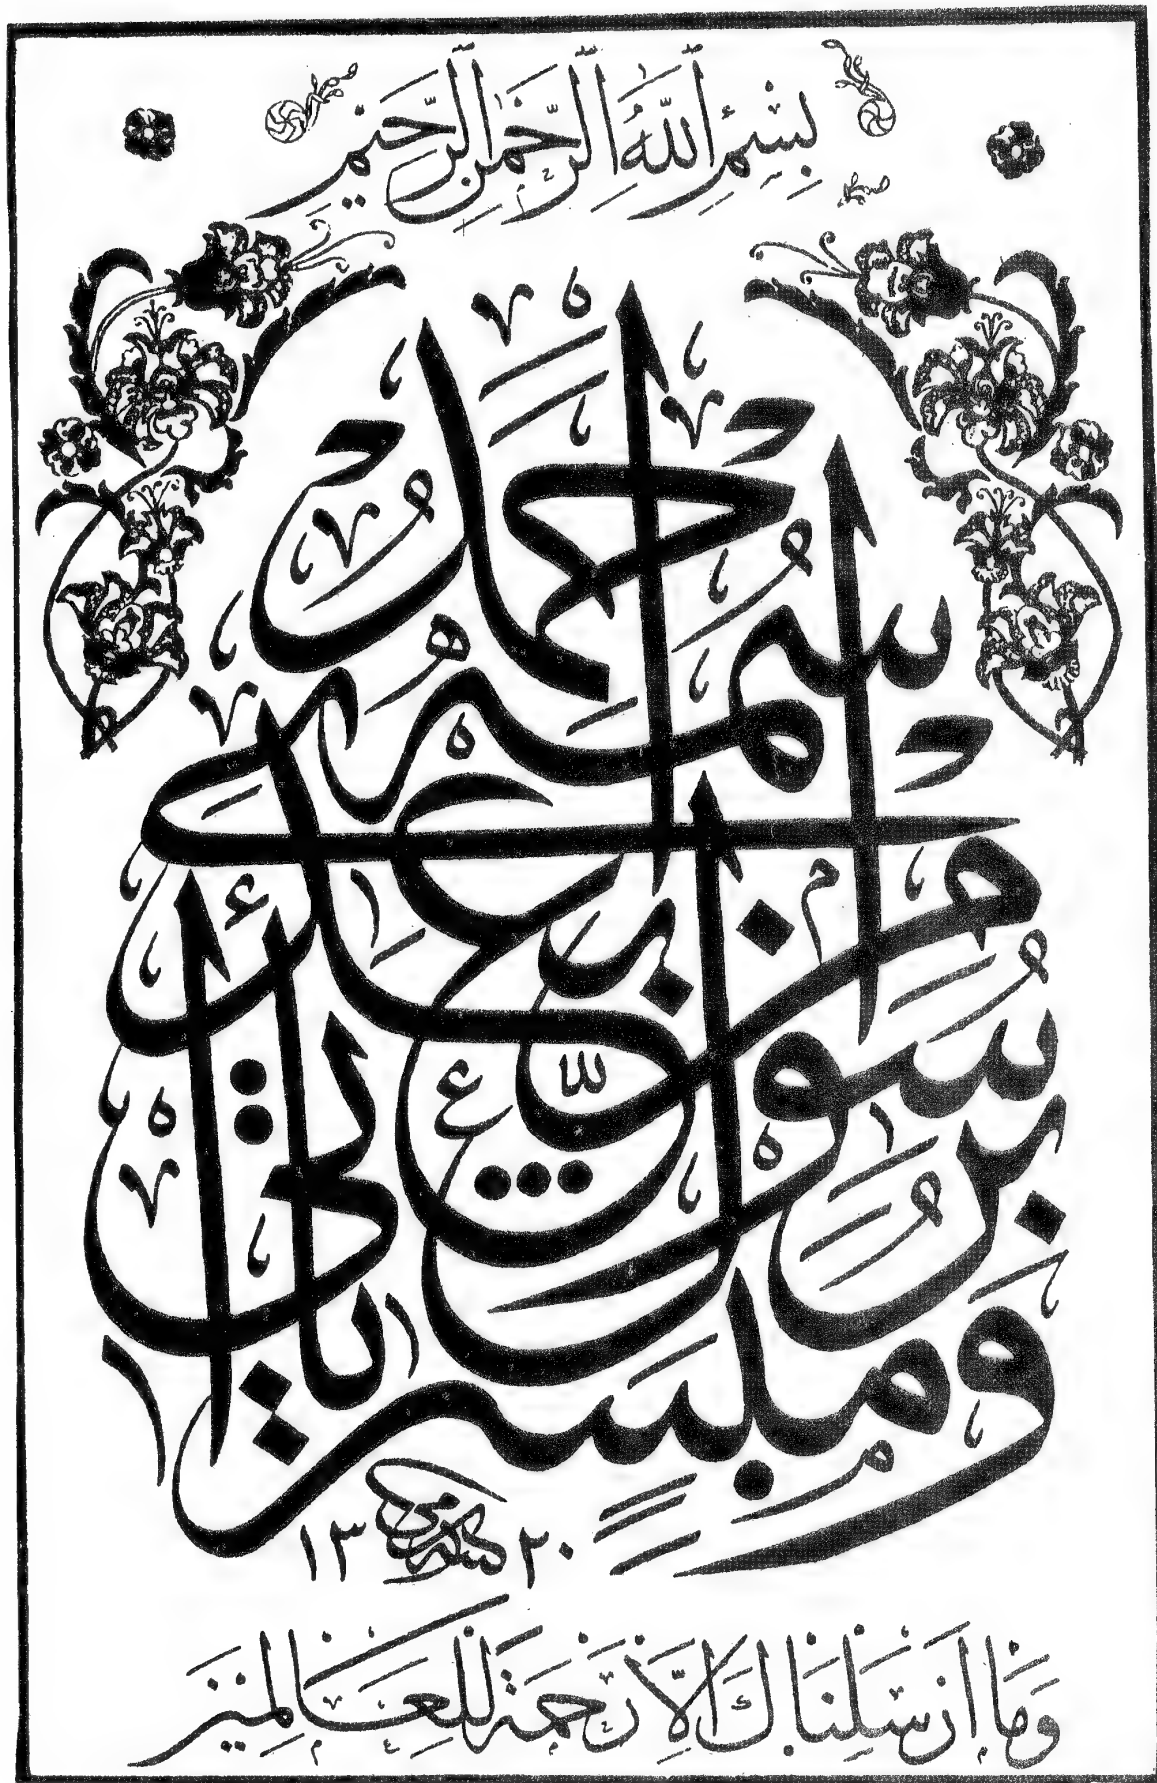 بِسْمِ اللّٰهِ الرَّحْمٰنِ الرَّحِيمِ
وَمُبَشِّرًا بِرَسُولٍ يَأْتِي مِنْ بَعْدِي اسْمُهُ أَحْمَدُ
١٣٢٠
وَمَا اَرْسَلْنَاكَ اِلَّا رَحْمَةً لِلْعَالَمِينَ